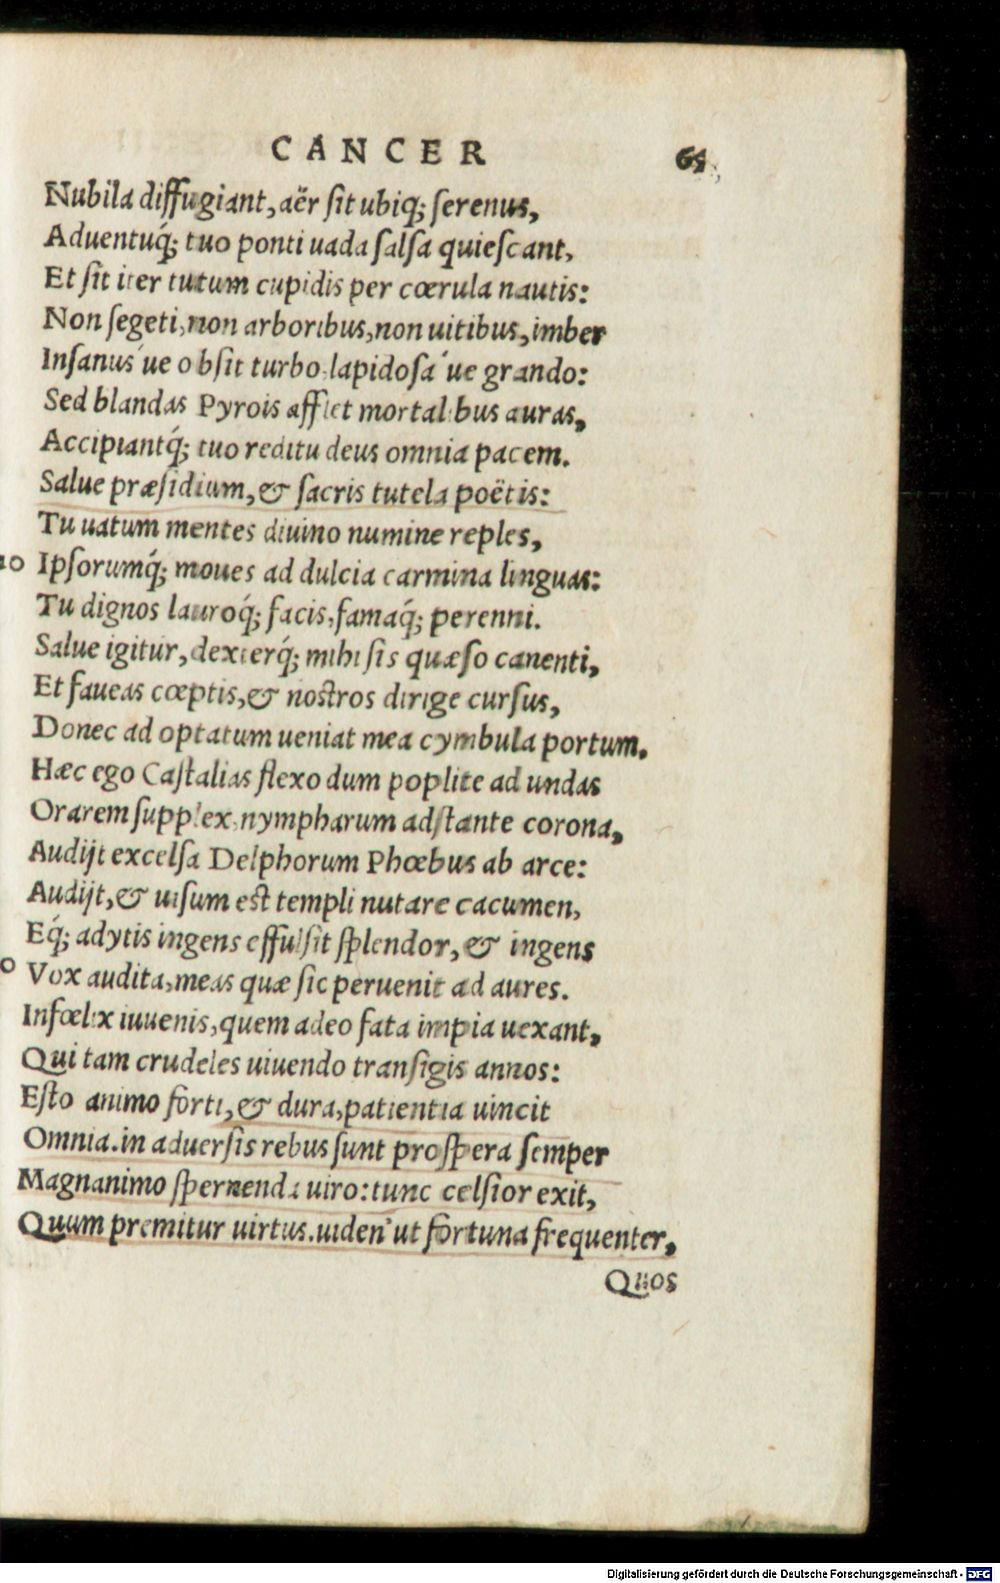 CANCER 65
Nubila diffugiant, aër sit ubiq; serenus,
Aduentuq́; tuo ponti uada salsa quiescant,
Et sit iter tutum cupidis per cœrula nautis:
Non segeti, non arboribus, non uitibus, imber
Insanus´ue obsit turbo, lapidosa´ue grando:
Sed blandas Pyrois afflet mortalibus auras,
Accipiantq́; tuo reditu deus omnia pacem.
Salue præsidium, & sacris tutela poëtis:
Tu uatum mentes diuino numine reples,
10 Ipsorumq́; moues ad dulcia carmina linguas:
Tu dignos lauroq́; facis, famaq́; perenni.
Salue igitur, dexterq́; mihi sis quæso canenti,
Et faueas cœptis, & nostros dirige cursus,
Donec ad optatum ueniat mea cymbula portum.
Hæc ego Castalias flexo dum poplite ad undas
Orarem supplex, nympharum adstante corona,
Audijt excelsa Delphorum Phœbus ab arce:
Audijt, & uisum est templi nutare cacumen,
Eq́; adytis ingens effulsit splendor, & ingens
0 Vox audita, meas quæ sic peruenit ad aures.
Infœlix iuuenis, quem adeo fata impia uexant,
Qui tam crudeles uiuendo transigis annos:
Esto animo forti, & dura, patientia uincit
Omnia. in aduersis rebus sunt prospera semper
Magnanimo spernenda uiro: tunc celsior exit,
Quum premitur uirtus. uiden' ut fortuna frequenter,
Quos
Digitalisierung gefördert durch die Deutsche Forschungsgemeinschaft - DFG